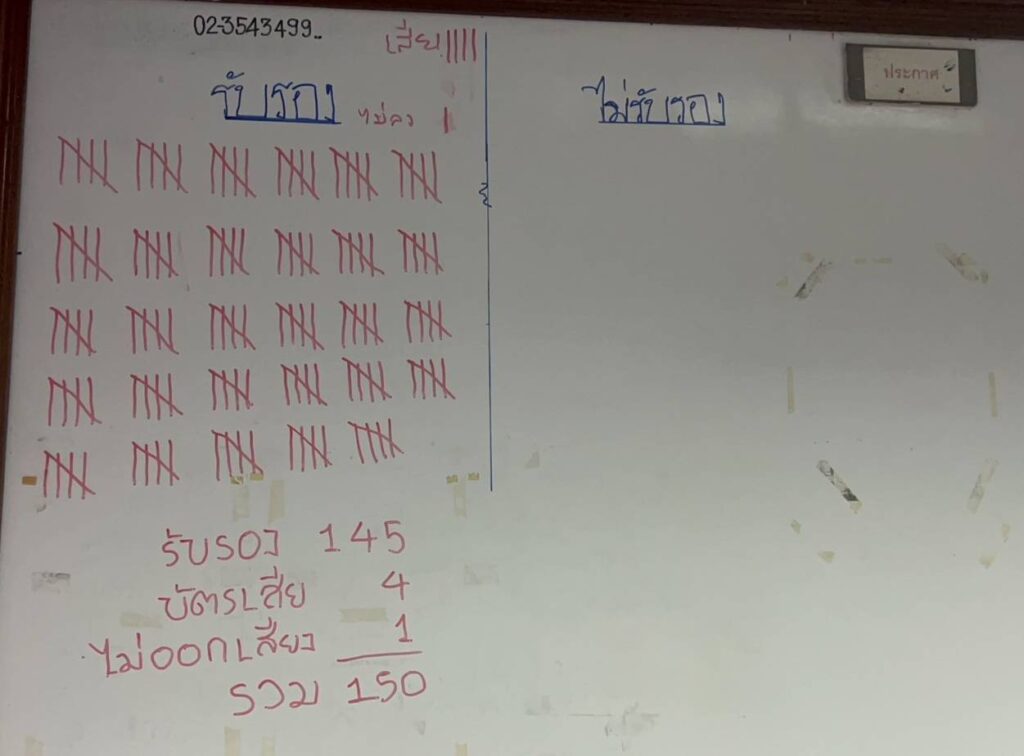 02-3543499
เสีย ||||
ประกาศ
รับรอง
ไม่ลง |
ไม่รับรอง
รับรอง 145
บัตรเสีย 4
ไม่ออกเสียง 1
รวม 150